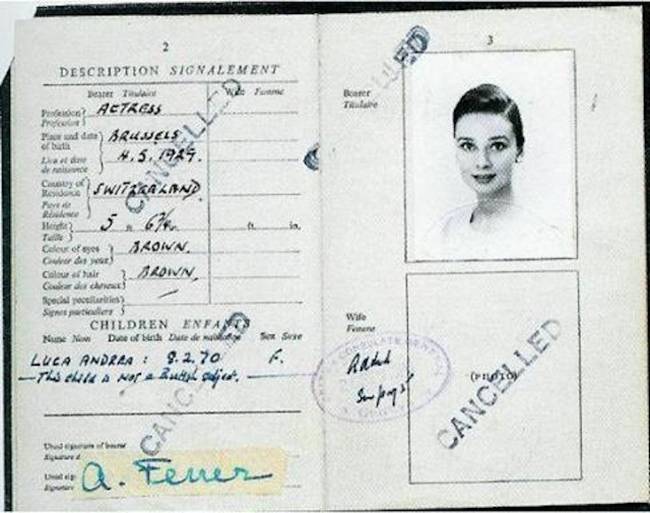 2
DESCRIPTION SIGNALEMENT
Bearer Titulaire Wife Femme
Profession Profession } ACTRESS
Place and date of birth } BRUSSELS
Lieu et date de naissance } 4.5.1929.
Country of Residence } SWITZERLAND
Pays de Résidence
Height Taille } 5 ft. in.
Colour of eyes Couleur des yeux } BROWN.
Colour of hair Couleur des cheveux } BROWN.
Special peculiarities Signes particuliers }
CHILDREN ENFANTS
Name Nom Date of birth Date de naissance Sex Sexe
LUCA ANDREA : 8.2.70 F.
This child is not a British subject.
Usual signature of bearer
Signature d
Usual sig
Signature
A. Ferrer
CANCELLED
CANCELLED
3
CANCELLED
Bearer
Titulaire
Wife
Femme
(PHOTO)
CANCELLED